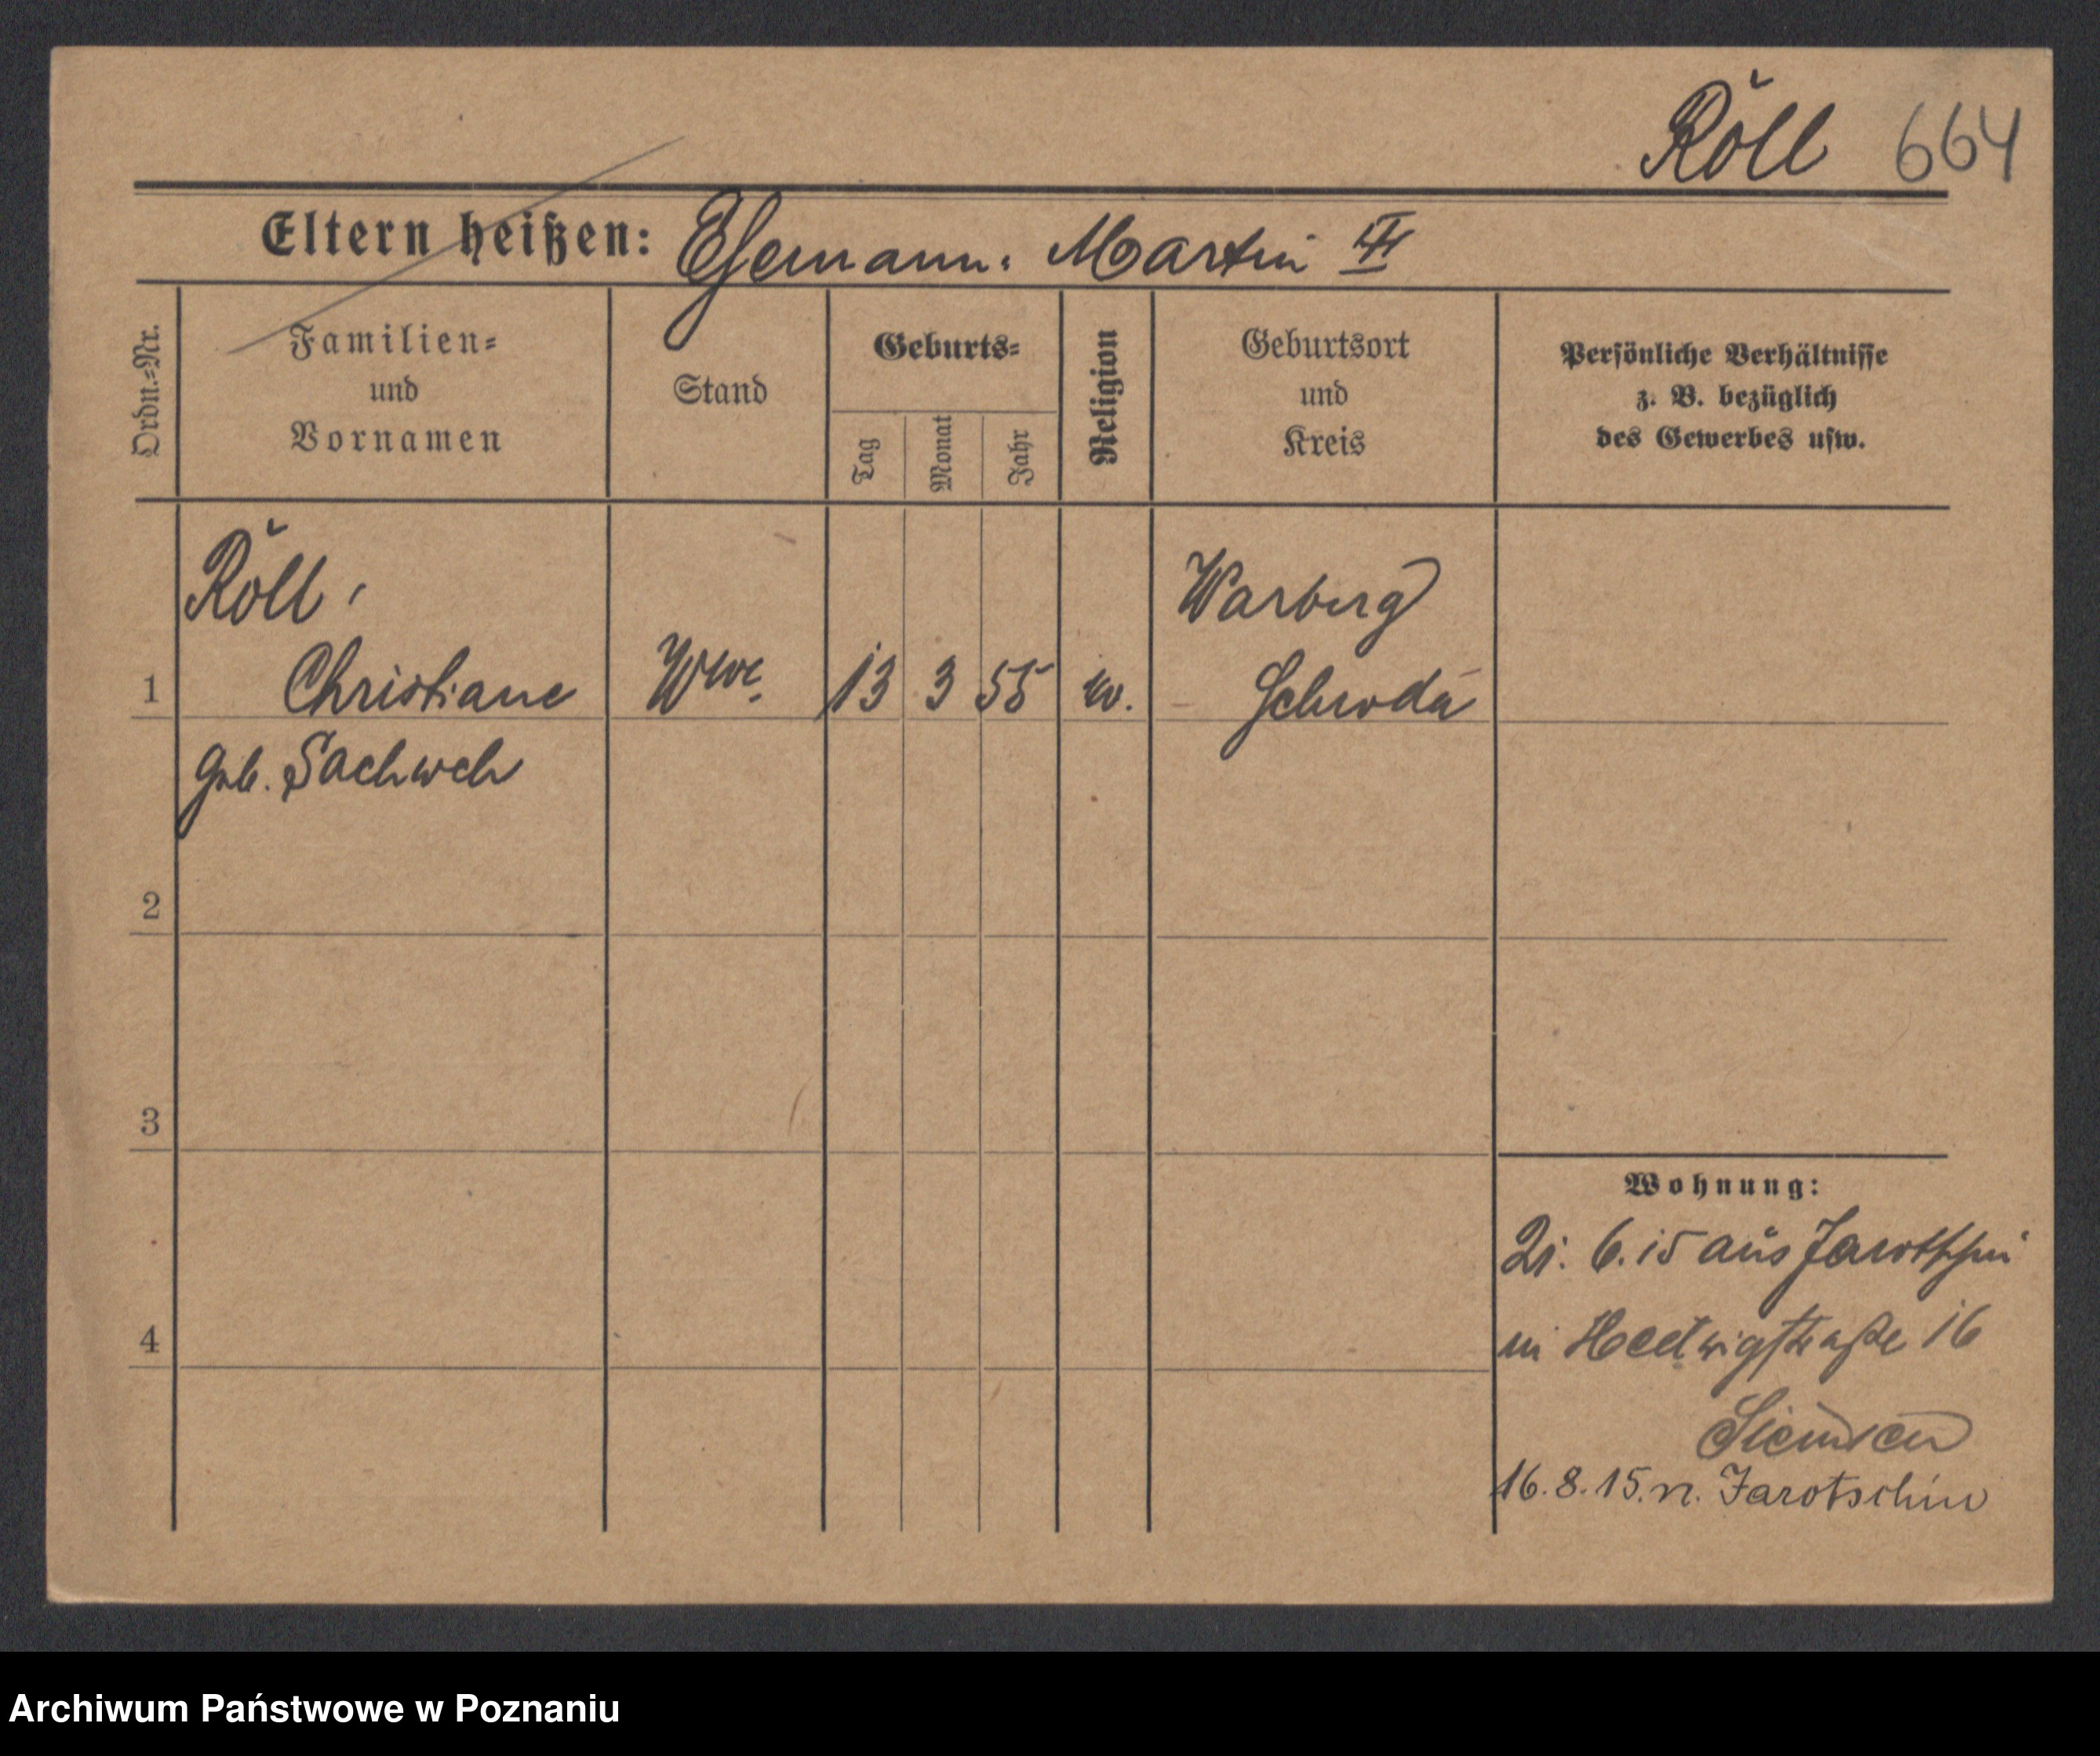 Röll 664
Eltern heißen: Ehemann: Martin III
Ordn.=Nr.
Familien=
und
Vornamen
Stand
Geburts=
Tag
Monat
Jahr
Religion
Geburtsort
und
Kreis
Persönliche Verhältnisse
z. B. bezüglich
des Gewerbes usw.
Röll,
Warberg
1 Christiane Wwe. 13 3 55 ev. Schroda
geb. Sachweh
2
3
4
Wohnung:
21. 6. 15 aus Jarotschin
in Hedwigstraße 16
16. 8. 15. n. Jarotschin
Archiwum Państwowe w Poznaniu